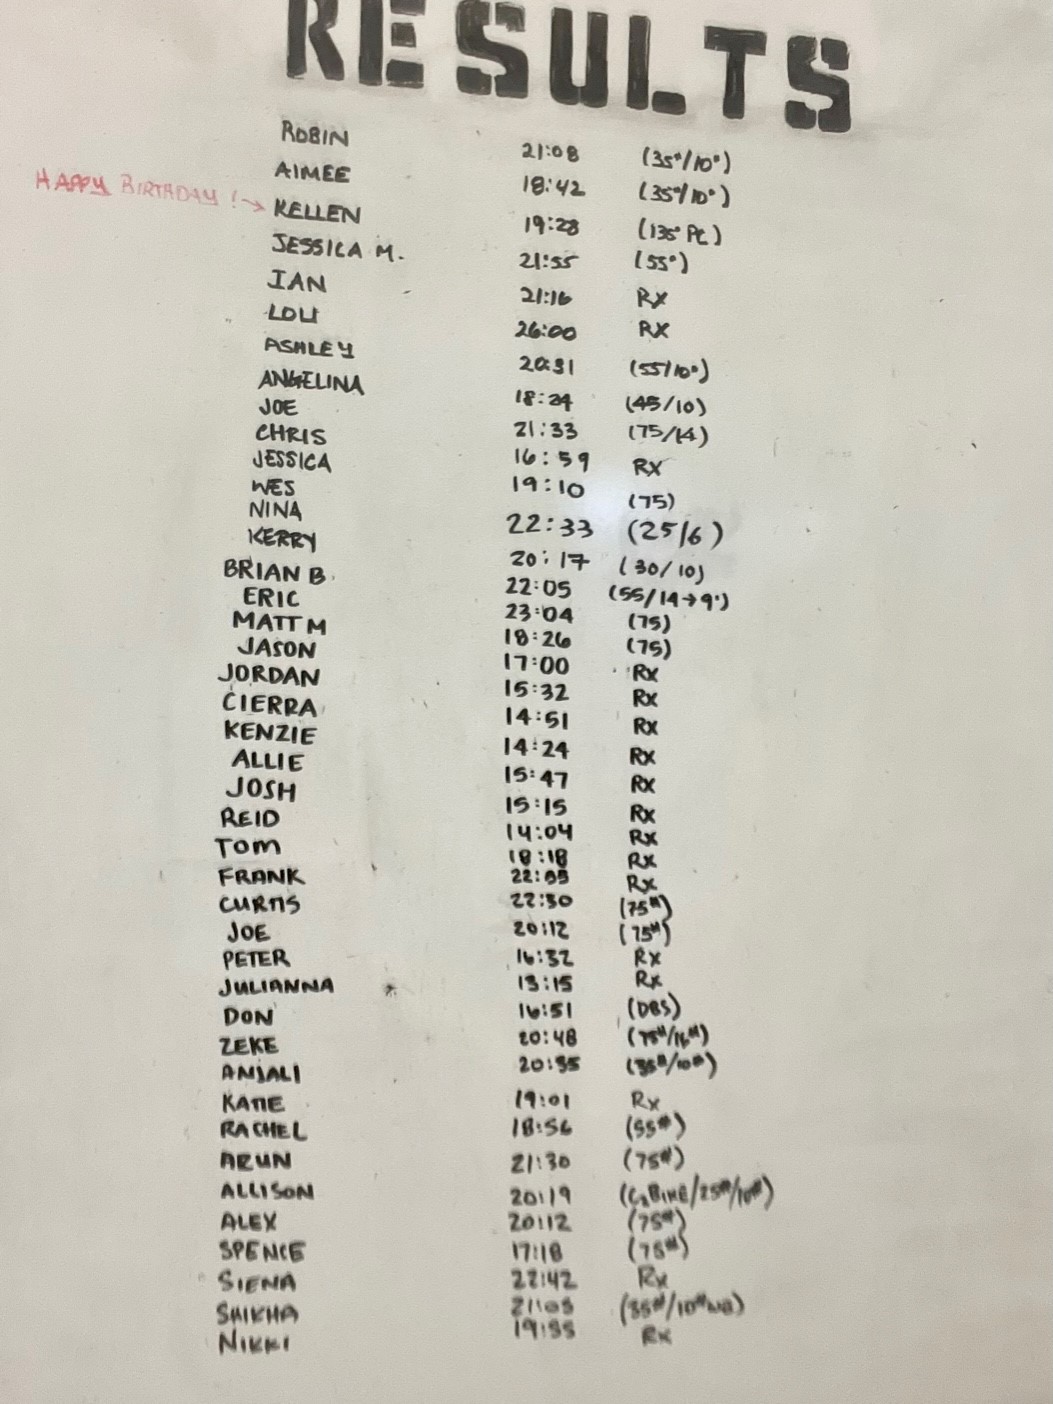 RESULTS
ROBIN 21:08 (35#/10#)
AIMEE 18:42 (35#/10#)
HAPPY BIRTHDAY! → KELLEN 19:28 (135# PC)
JESSICA M. 21:55 (55#)
IAN 21:16 RX
LOU 26:00 RX
ASHLEY 20:31 (55/10#)
ANGELINA 18:24 (45/10)
JOE 21:33 (75/14)
CHRIS 16:59 RX
JESSICA
WES 19:10 (75)
NINA 22:33 (25/6)
KERRY 20:17 (30/10)
BRIAN B. 22:05 (55/14→9')
ERIC 23:04 (75)
MATT M 18:26 (75)
JASON 17:00 RX
JORDAN 15:32 RX
CIERRA 14:51 RX
KENZIE 14:24 RX
ALLIE 15:47 RX
JOSH 15:15 RX
REID 14:04 RX
TOM 18:18 RX
FRANK RX
CURTIS 22:30 (75#)
JOE 20:12 (75#)
PETER 16:32 Rx
JULIANNA * 13:15 Rx
DON 16:51 (DBS)
ZEKE 20:48
ANJALI 20:35 (35#/10#)
KATIE 19:01 Rx
RACHEL 18:56 (55#)
ARUN 21:30 (75#)
ALLISON 20:19
ALEX 20:12 (75#)
SPENCE 17:18 (75#)
SIENA 22:42 Rx
SHIKHA 21:05
NIKKI 19:55 Rx